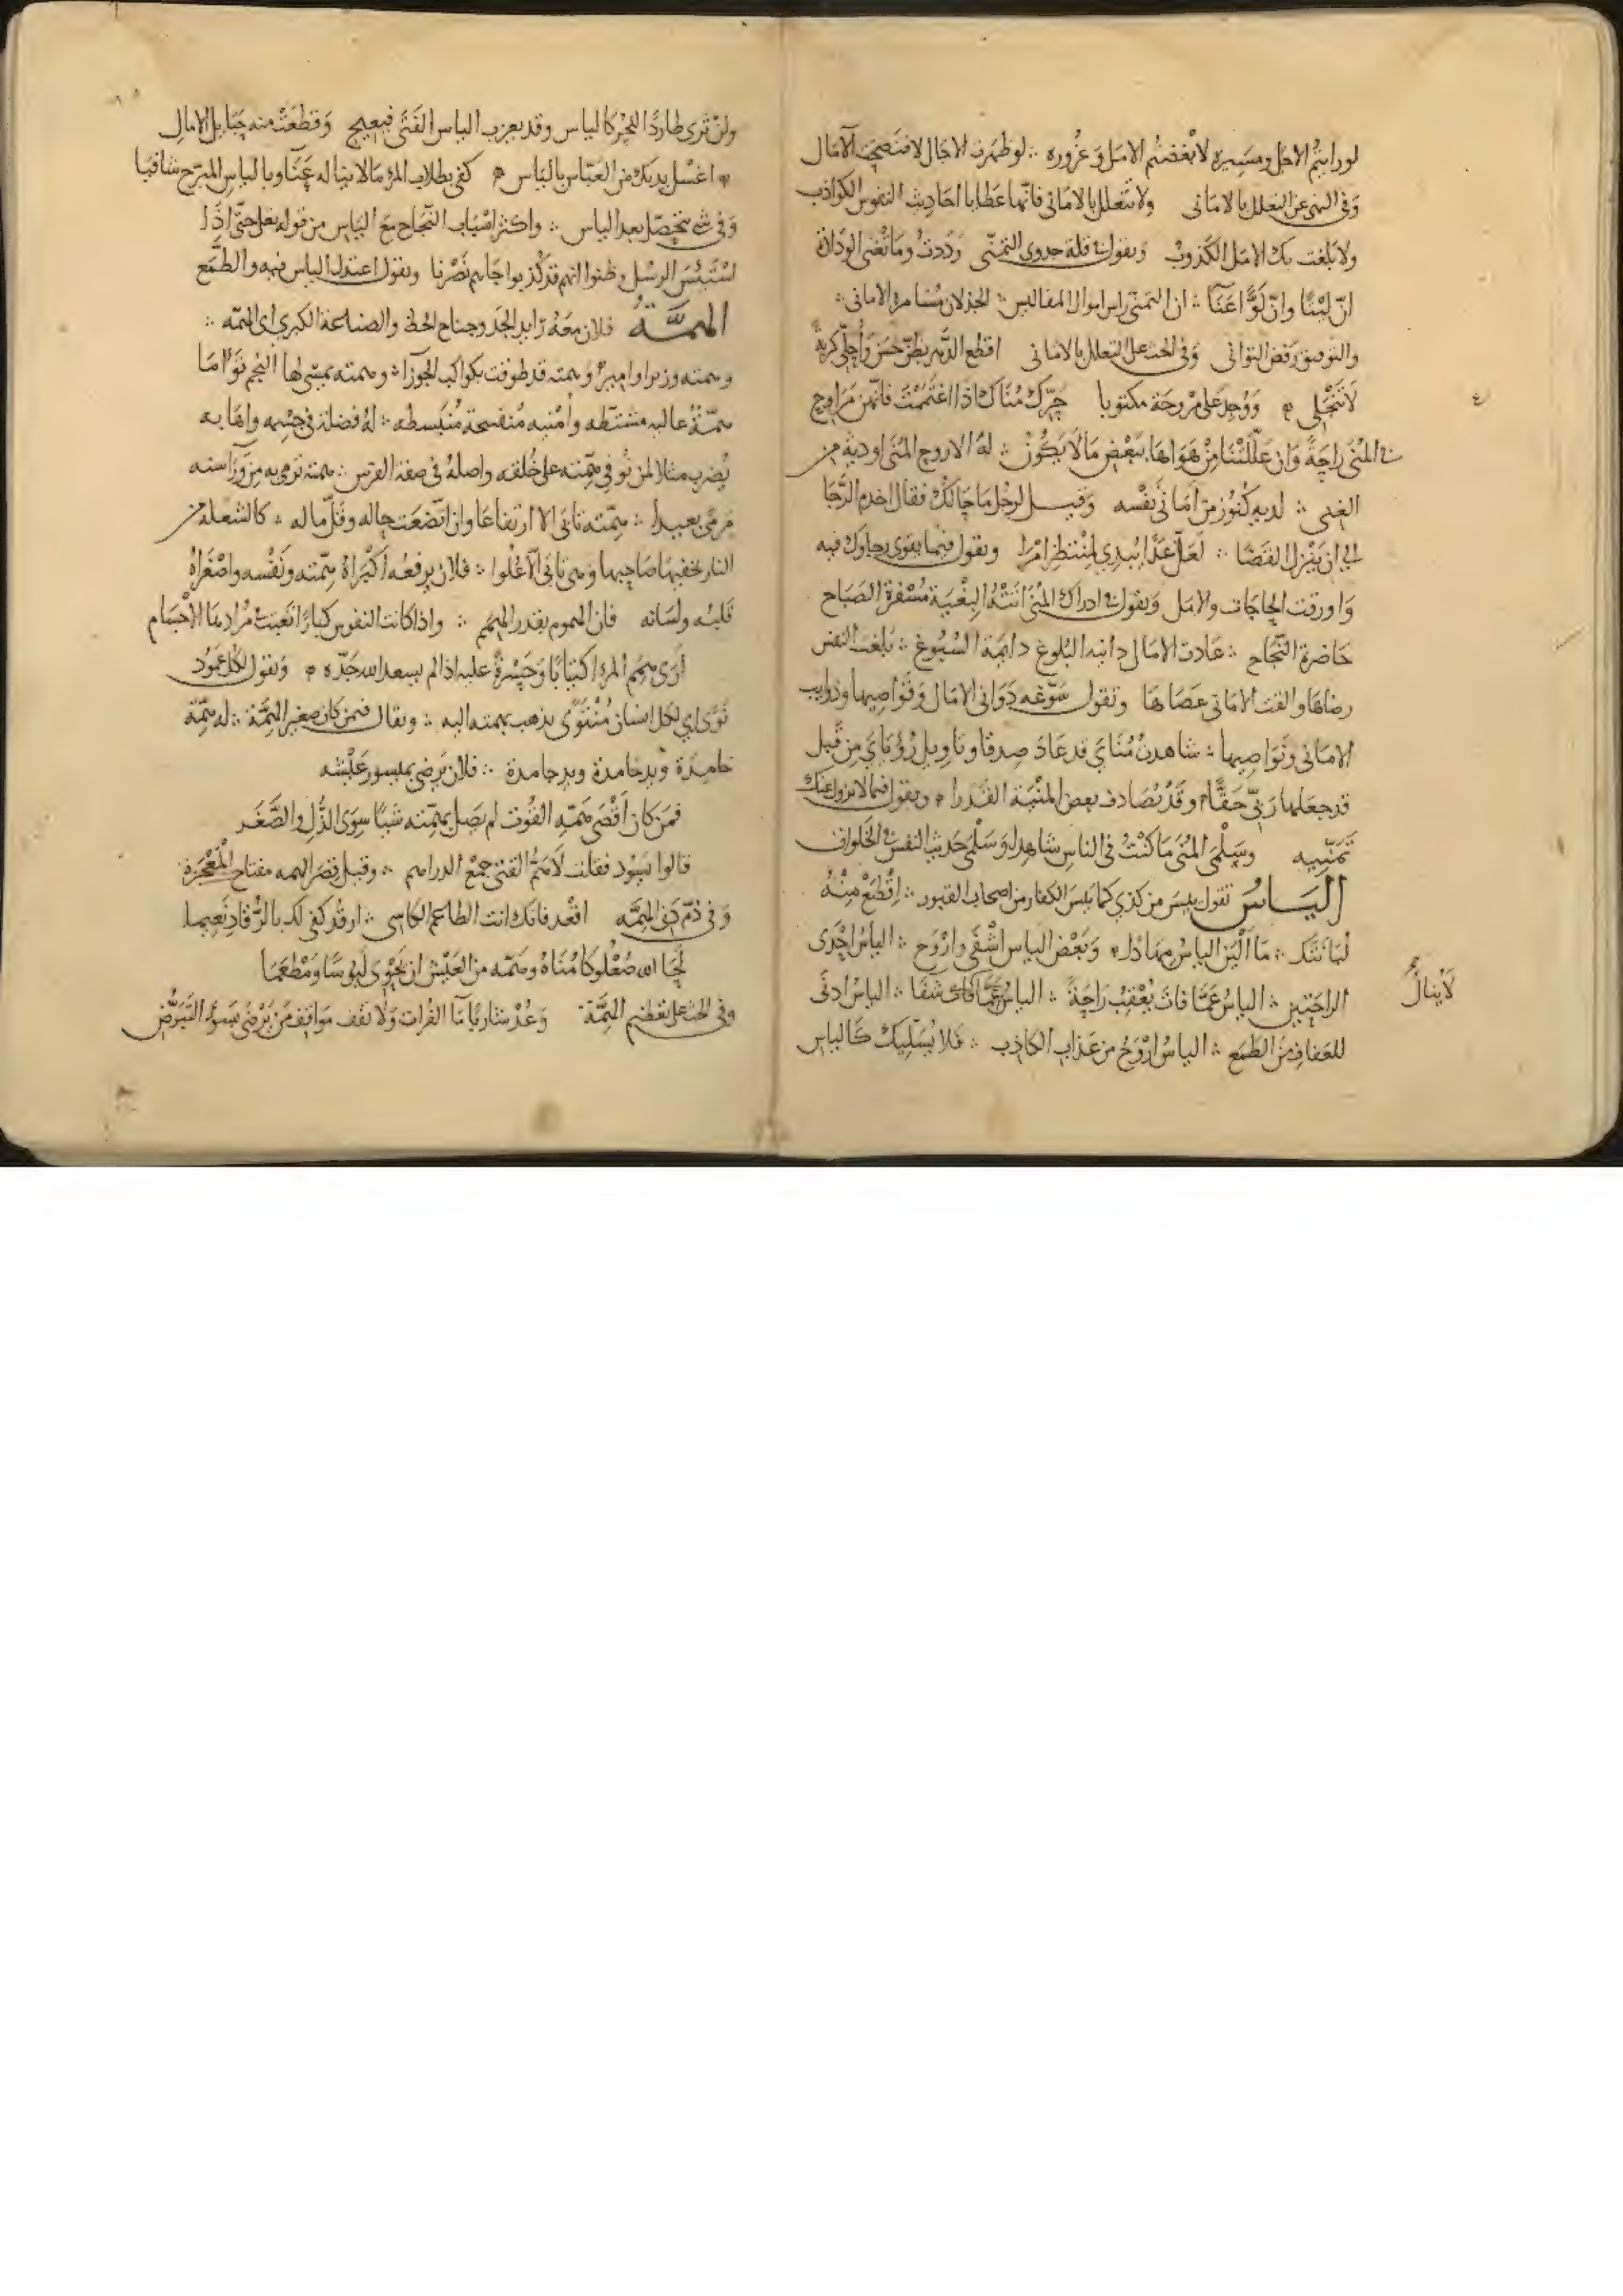 لو رأيتم الاجل ومسيره لأبغضتم الامل وغروره ∴ لو ظهرت الاجال لافتضحت الآمال
وفى النهى عن التعلل بالامانى ولا تتعلل بالامانى فانها عطايا احاديث النفوس الكواذب
ولا بلغت بك الامل الكذوب ويقول فى قلة جدوى التمنّى وددت وما تغنى الودادة
انّ ليتًا وانّ لوًّا عنآ ∴ ان التمنى راس اموال المفاليس ∴ الجذلان مسامرة الامانى ∴
والتوفيق رفض التوانى وفى الحث على التعلل بالامانى اقطع الدهر بظنّ حسن واجلّ كربة
لا تنجلى ۞ ووجد على مروحة مكتوبا حرّك مناك اذا اغتممت فانّهن مراوح
فى المنى راحةً وان عللتنا من هواها ببعض ما لا يكون ∴ له الاروح المنى اودية من
الغنى ∴ لديه كنوز من امانى نفسه وقيل لرجل ما حالك فقال اخدم الرجا
الى ان ينزل القضا ∴ لعلّ غدًا يبدى لمنتظر امرا ويقول فيما يقوى رجاوك فيه
وا ورقت الحاجات والامل ويقول فى ادراك المنى انته البغية مسفرة الصباح
حاضرة النجاح ∴ عادت الامال دانية البلوغ دايمة السبوغ ∴ بلغت النفس
رضاها والقت الامانى عصاها وتقول سوّغه دوانى الامال وقواصيها وذوايب
الامانى ونواصيها ∴ شاهدت مناى قد عاد صدقا وتاويل رؤياى من قبل
قد جعلها ربى حقًّا ۞ وقد تصادف بعض المنية القدرا ۞ ويقول فيما لا يزول عنك
تمنّيه وسلمى المنى ما كنت فى الناس شاهد لو سلمى حديث النفس فى الخلوات
الياس تقول يئس من كذى كما يئس الكفار من اصحاب القبور ∴ اقطع منه
لبانتك ∴ ما ألين الياس مهادا ۞ وبعض الياس اشفى واروح ∴ الياس احدى
الراحتين ∴ الياس عمّا فات يعقب راحةً ∴ الياس عمّا فات شفا ∴ الياس ادنى
لا ينال
للعفاف من الطمع ∴ الياس اروح من عذاب الكاذب ∴ فلا يسليك كالياس
ولن ترى طاردًا للحر كالياس وقد يعزب الياس الفتى فيعيج وقطعت منه حبايل الامال
۞ اغسل يديك من العباس بالياس ۞ كفى بطلاب المرء ما لا يناله عنآ وبالياس المبرح شافيا
وفى شى يتحصّل بعد الياس ∴ واكثر اسباب النجاح مع الياس من قوله تعلى حتى اذا
استيئس الرسل وظنوا انهم قد كذبوا جاءهم نصرنا ويقول اعتدل الياس فيه والطمع
الهمّة فلان معه زايد الجد وجناح الحظ والصناعة الكبرى اى الهمّه ∴
وهمته وزيرا واميرًا وهمته قد طوفت بكواكب الجوزا ∴ وهمته يمسى لها النجم توأما
همّة عاليه مشتطه وأمنيه منفسحة منبسطه ∴ له فضلة فى جسمه واهابه
يضرب مثلا لمن توفى همّته على خلقه واصله فى صفة الفرس ∴ همته ترمى به من ورآ سنه
مرمًى بعيدا ∴ همّته تابى الا ارتفاعا وان اتضعت حاله وقلّ ماله ∴ كالشعلة من
النار يخفيها صاحبها وهى تابى الّا علوا ∴ فلان يرفعه اكبراه همّته ونفسه واصغراه
قلبه ولسانه فان الهموم بقدر الهمم ∴ واذا كانت النفوس كبارًا تعبت فى مرادها الأجسام
أرى همم المرء اكتيابًا وحسرةً عليه اذا لم يسعد الله جدّه ۞ ويقول لكل عمود
نوًى اى لكل انسان منتوًى يذهب بهمته اليه ∴ ويقال فيمن كان صغير الهمّة ∴ له همّة
خامدة ويد جامدة ∴ فلان يرضى بميسور عيشه
فمن كان أقصى همّه القوت لم يصل بهمّته شيئًا سوى الذل والصّغر
قالوا يسود فقلت لا همّ الفتى جمع الدراهم ∴ وقيل قصر الهمه مفتاح المعجزة
وفى ذم دنى الهمّه اقعد فانك انت الطاعم الكاسى ∴ ارقد كفى لك بالرقاد نعيما
لحا الله صعلوكا مناه وهمّه من العيش ان يحوى لبوسًا ومطعما
وفى الحث على تعظيم الهمّة وعد شاربًا ما الفرات ولا تقف مواقف من يرضى بسوء التبرّض